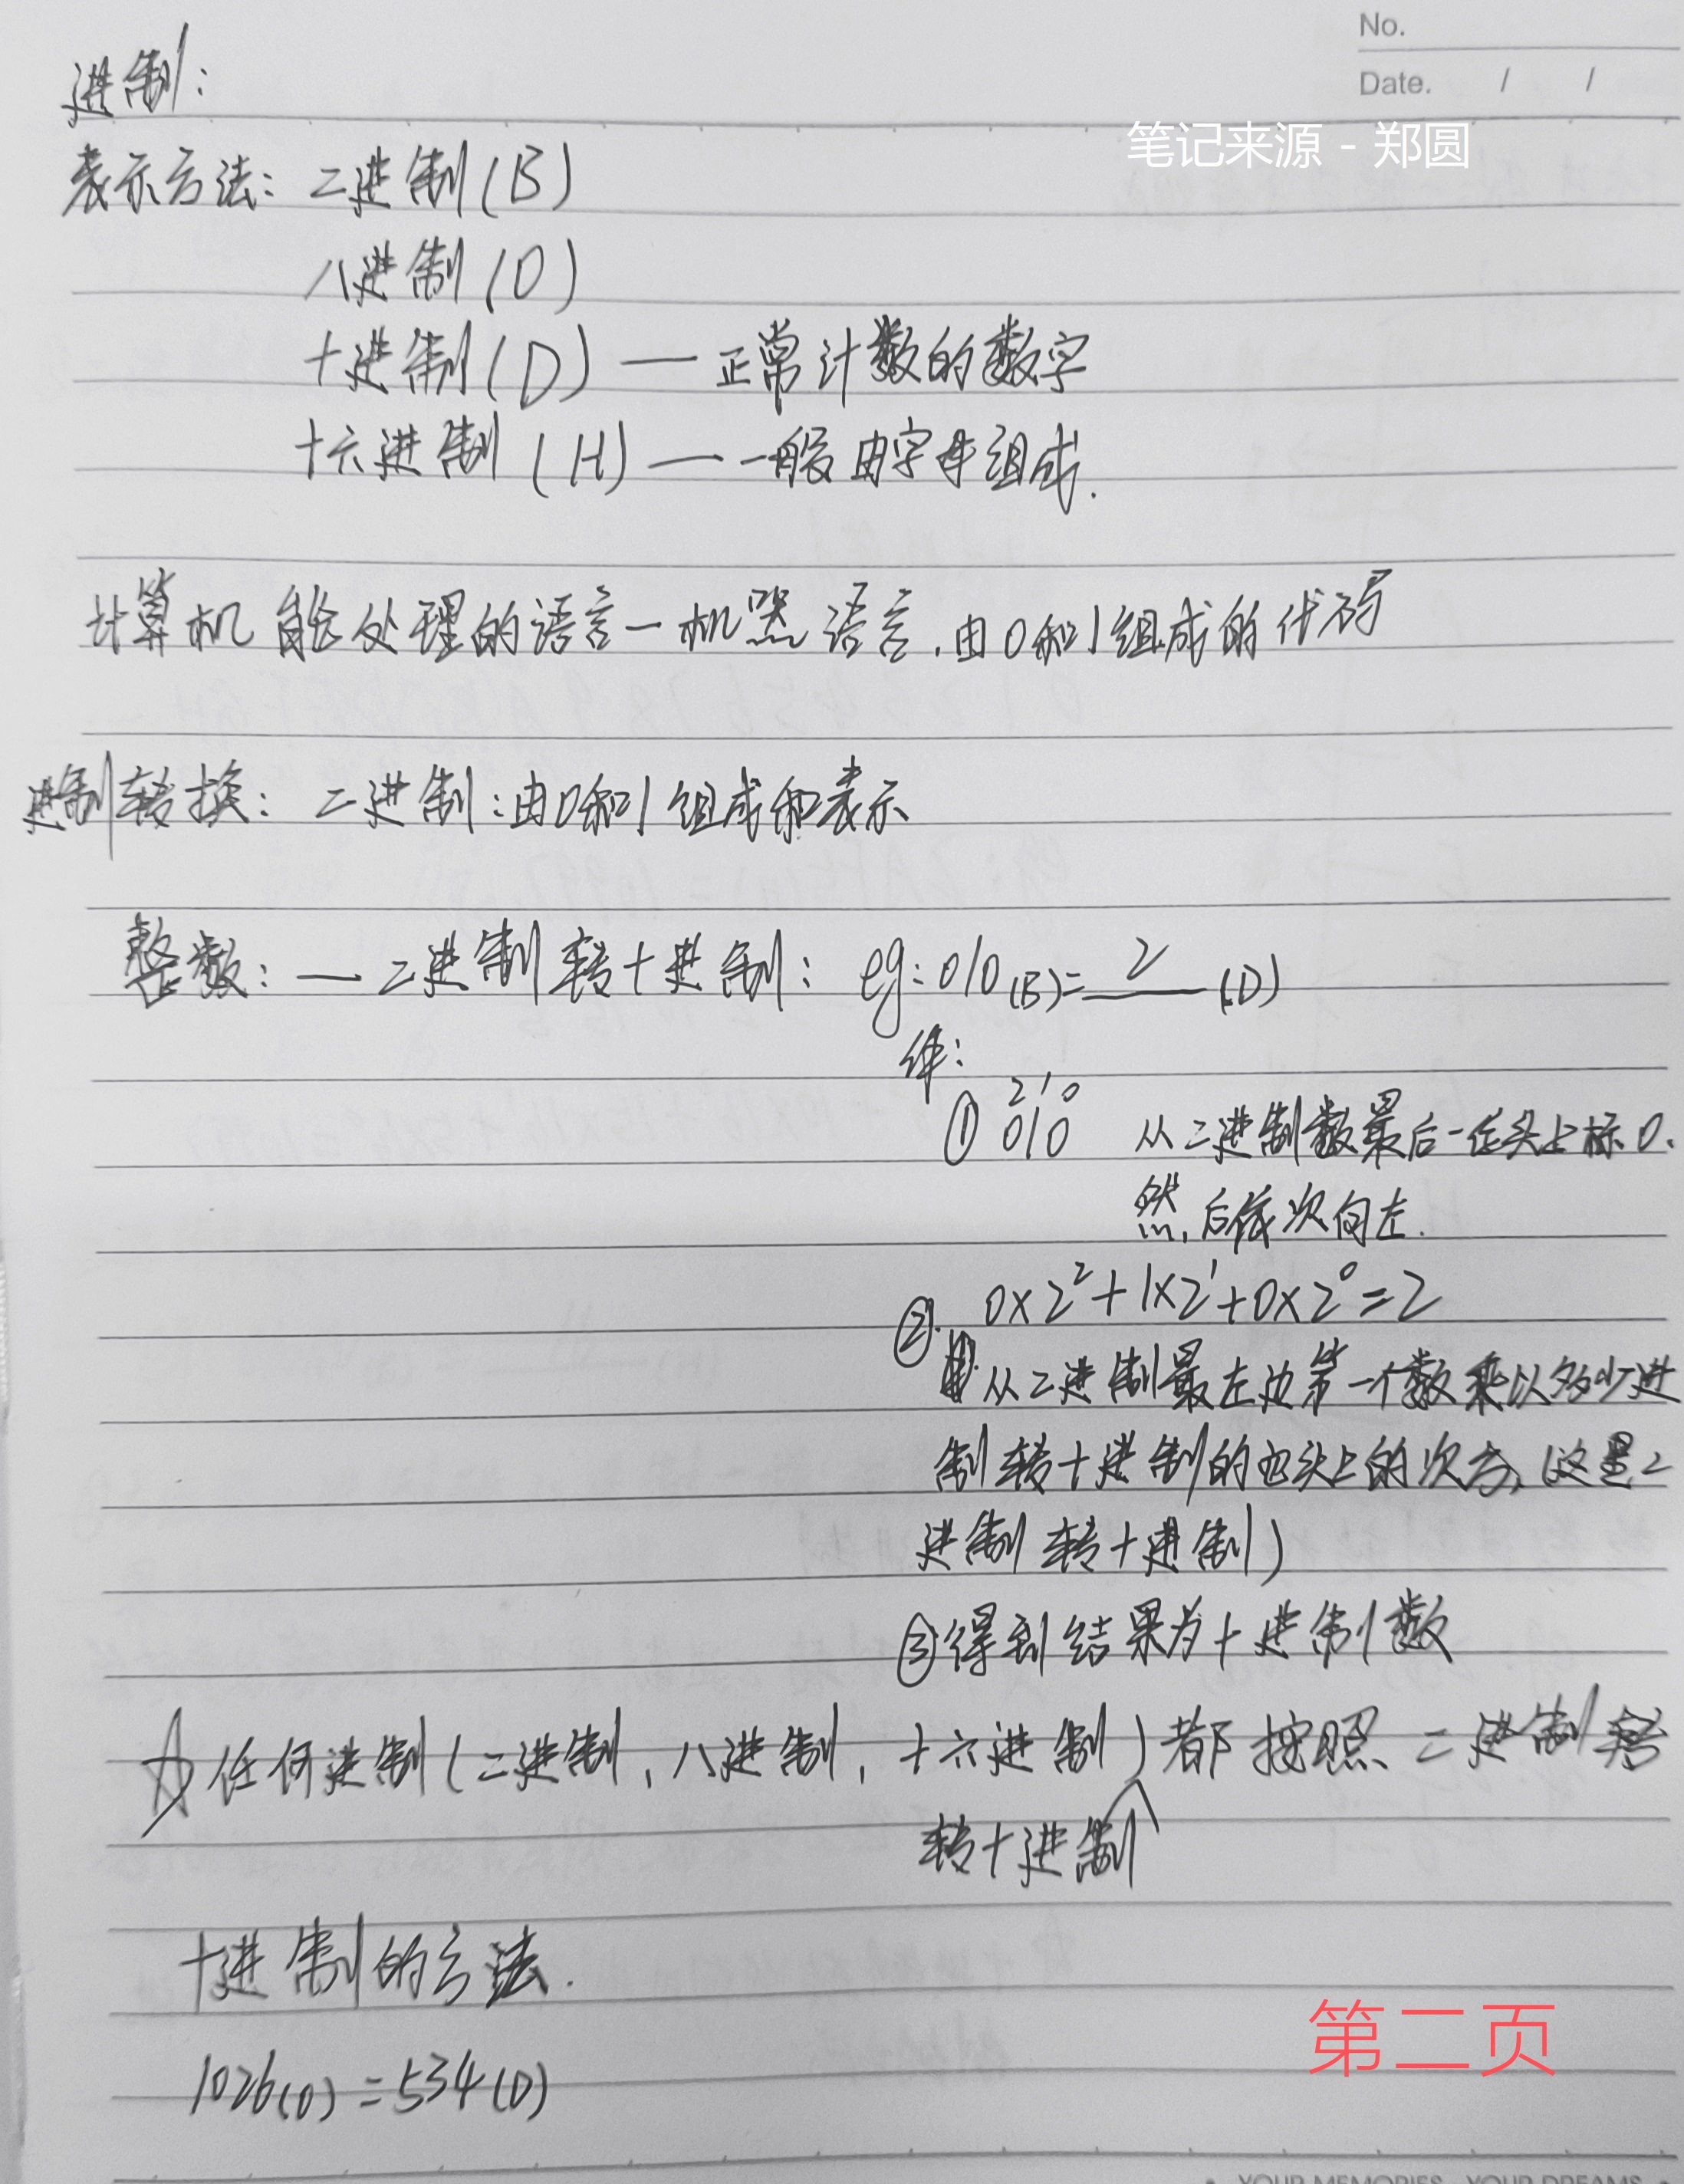 No.
Date. / /
笔记来源 - 郑圆
进制：
表示方法：二进制(B)
八进制(O)
十进制(D) — 正常计数的数字
十六进制(H) — 一般由字母组成.
计算机能处理的语言 — 机器语言,由0和1组成的代码
进制转换：二进制：由0和1组成和表示
整数：— 二进制转十进制： eg: 010(B)= 2 (D)
2 1 0
① 010 从二进制数最后一位头上标0.
然后依次向左.
②. 0×2²+1×2¹+0×2⁰=2
从二进制最左边第一个数乘以多少进
制转十进制的 头上的次方, (这里2
进制转十进制)
③得到结果为十进制数
☆任何进制(二进制,八进制,十六进制)都按照二进制
转十进制
十进制的方法.
1026(O)=534(D)
第二页
YOUR MEMORIES YOUR DREAMS